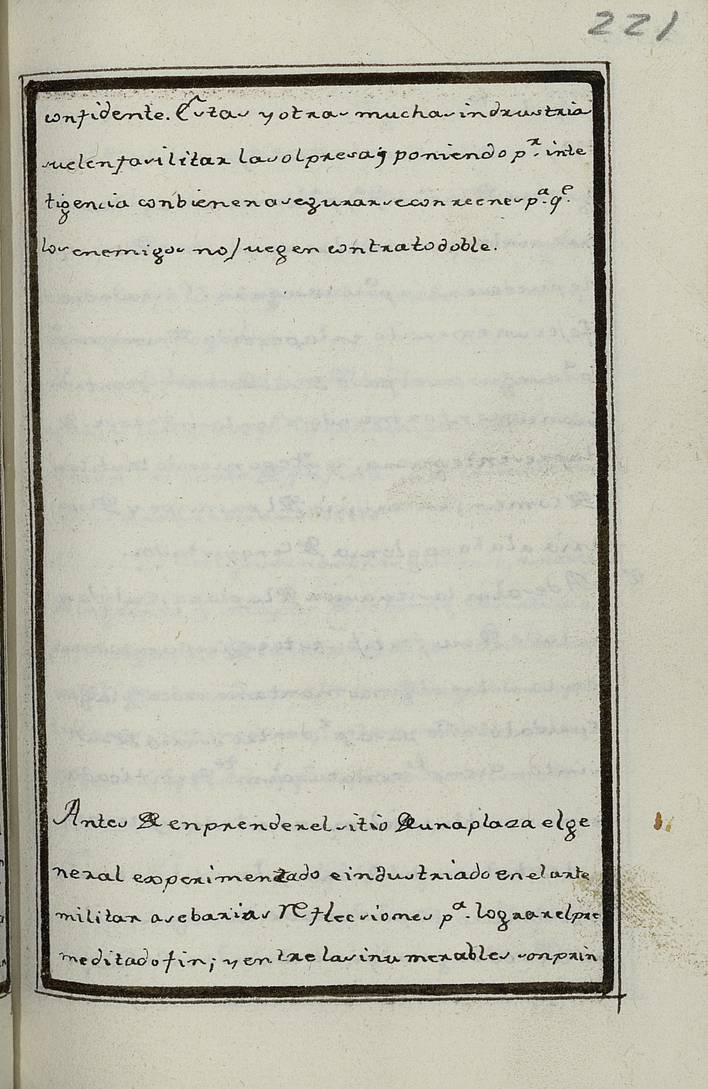 221
confidente. Estas y otras muchas indrustria
suelen fasilitar la solpresa; poniendo pr. inte
tigencia conbienen asegurarse con recnes pa. qe.
los enemigos no juegen contrato doble.
Antes de enprender el sitio de una plaza el ge
neral experimentado e industriado en el arte
militar ase barias Reflecsiones pa. lograr el pre
meditado fin; y entre las inumerables son prin